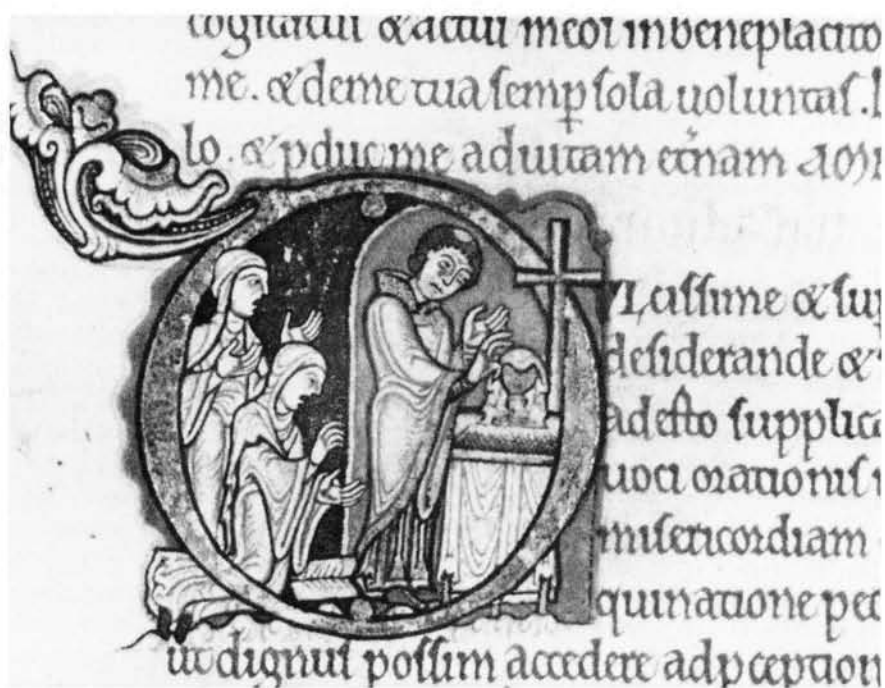 cogitatui & actui meo. In beneplacito
me. & deme tua semp sola uoluntas.
lo. & pduc me ad uitam etnam am
Dulcissime & sup
desiderande &
adesto supplica
uoci orationis
misericordiam
quinatione pec
ut dignus possim accedere ad pception